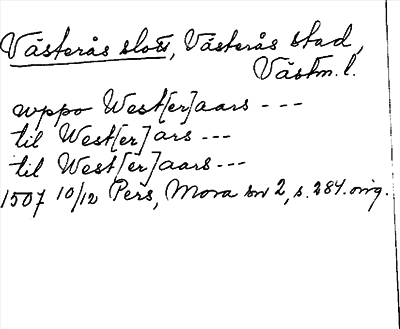 Västerås slott, Västerås stad,
Västm. l.
uppo West[er]aars ---
til West[er]ars ---
til West[er]aars ---
1507 10/12 Pers, Mora sn 2, s. 284. orig.